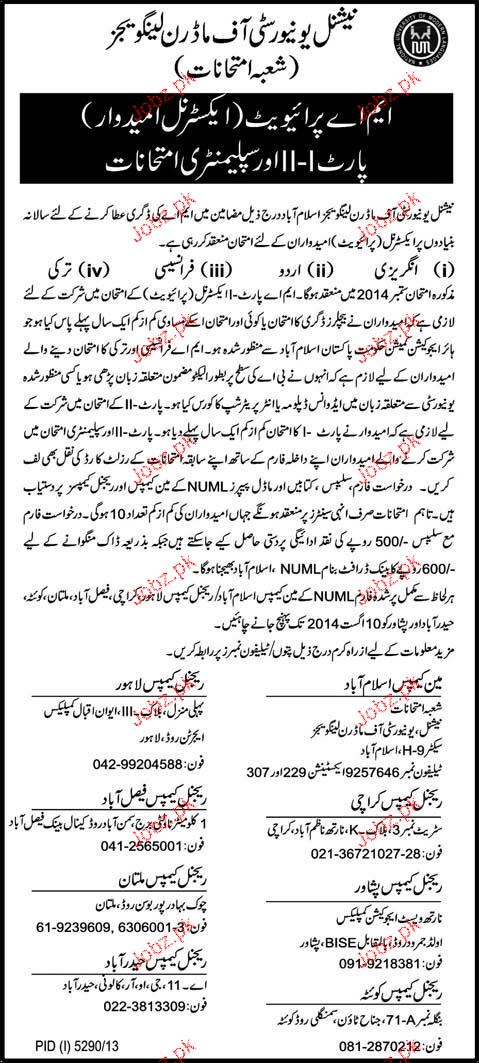 نیشنل یونیورسٹی آف ماڈرن لینگویجز
(شعبہ امتحانات)
NATIONAL UNIVERSITY OF MODERN LANGUAGES
NUML
ایم اے پرائیویٹ (ایکسٹرنل امیدوار)
پارٹ I-II اور سپلیمنٹری امتحانات
نیشنل یونیورسٹی آف ماڈرن لینگویجز اسلام آباد درج ذیل مضامین میں ایم اے کی ڈگری عطا کرنے کے لئے سالانہ
بنیادوں پر ایکسٹرنل (پرائیویٹ) امیدواران کے لئے امتحان منعقد کر رہی ہے۔
(i) انگریزی (ii) اردو (iii) فرانسیسی (iv) ترکی
مذکورہ امتحان ستمبر 2014 میں منعقد ہوگا۔ ایم اے پارٹ-I ایکسٹرنل (پرائیویٹ) کے امتحان میں شرکت کے لئے
لازمی ہے کہ امیدواران نے بیچلرز ڈگری کا امتحان یا کوئی اور امتحان اسکے مساوی کم از کم ایک سال پہلے پاس کیا ہو جو
ہائر ایجوکیشن کمیشن حکومت پاکستان اسلام آباد سے منظور شدہ ہو۔ ایم اے فرانسیسی اور ترکی کا امتحان دینے والے
امیدواران کے لیے لازم ہے کہ انہوں نے بی اے کی سطح پر بطور الیکٹو مضمون متعلقہ زبان پڑھی ہو یا کسی منظور شدہ
یونیورسٹی سے متعلقہ زبان میں ایڈوانس ڈپلومہ یا انٹرپریٹرشپ کا کورس کیا ہو۔ پارٹ-II کے امتحان میں شرکت کے
لیے لازمی ہے کہ امیدوار نے پارٹ-I کا امتحان کم از کم ایک سال پہلے دیا ہو۔ پارٹ-II اور سپلیمنٹری امتحان میں
شرکت کرنے والے امیدواران اپنے داخلہ فارم کے ساتھ اپنے سابقہ امتحانات کے رزلٹ کارڈ کی نقل بھی لف
کریں۔ درخواست فارم، سلیبس، کتابیں اور ماڈل پیپرز NUML کے مین کیمپس اور ریجنل کیمپسز پر دستیاب
ہیں۔ تاہم امتحانات صرف انہی سینٹرز پر منعقد ہونگے جہاں امیدواران کی کم از کم تعداد 10 ہوگی۔ درخواست فارم
مع سلیبس -/500 روپے کی نقد ادائیگی پر دستی حاصل کیے جاسکتے ہیں جبکہ بذریعہ ڈاک منگوانے کے لیے
-/600 روپے کا بینک ڈرافٹ بنام NUML، اسلام آباد بھیجنا ہوگا۔
ہر لحاظ سے مکمل پر شدہ فارم NUML کے مین کیمپس اسلام آباد/ریجنل کیمپس لاہور، کراچی، فیصل آباد، ملتان، کوئٹہ،
حیدرآباد اور پشاور کو 10 اگست 2014 تک پہنچ جانے چاہئیں۔
مزید معلومات کے لیے ازراہ کرم درج ذیل پتوں/ٹیلیفون نمبرز پر رابطہ کریں۔
مین کیمپس اسلام آباد
شعبہ امتحانات
نیشنل یونیورسٹی آف ماڈرن لینگویجز
سیکٹر H-9، اسلام آباد
ٹیلیفون نمبر 9257646 ایکسٹینشن 229 اور 307
ریجنل کیمپس کراچی
سٹریٹ نمبر 3، بلاک-K، نارتھ ناظم آباد، کراچی
فون: 021-36721027-28
ریجنل کیمپس پشاور
نارتھ ویسٹ ایجوکیشن کمپلیکس
اولڈ جمرود روڈ، بالمقابل BISE، پشاور
فون: 091-9218381
ریجنل کیمپس کوئٹہ
بنگلہ نمبر 71-A، جناح ٹاؤن، سمنگلی روڈ کوئٹہ
فون: 081-2870212
ریجنل کیمپس لاہور
پہلی منزل، بلاک-III، ایوان اقبال کمپلیکس
ایجرٹن روڈ، لاہور
فون: 042-99204588
ریجنل کیمپس فیصل آباد
1 کلومیٹر ناولٹی برج، بہمن آباد روڈ کینال بینک فیصل آباد
فون: 041-2565001
ریجنل کیمپس ملتان
چوک بہادرپور بوسن روڈ، ملتان
فون: 61-9239609, 6306001-3
ریجنل کیمپس حیدرآباد
اے-11، جی، او، آر، کالونی، حیدرآباد
فون: 022-3813309
PID (I) 5290/13
Jobz.pk